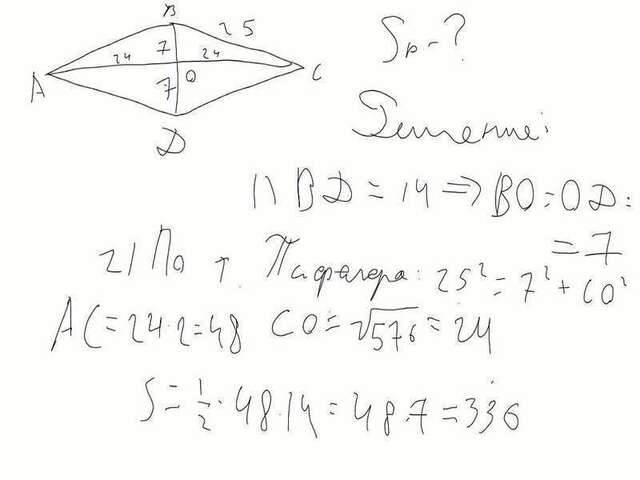 B
25
7
24 24
A O C
7
D
Sр-?
Решение:
1) BD = 14 => BO = OD =
= 7
2) По т. Пифагора: 25² = 7² + CO²
AC = 24·2 = 48 CO = √576 = 24
S = 1/2 · 48 · 14 = 48·7 = 336